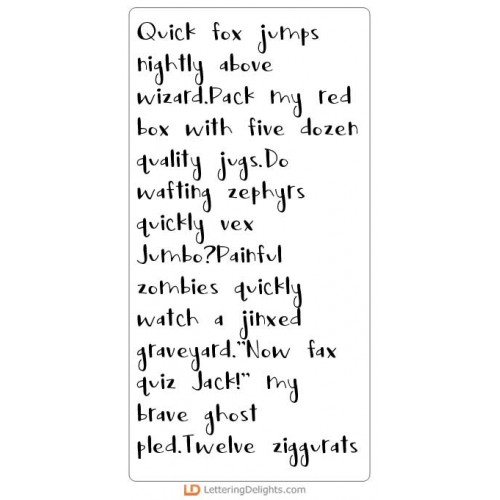 Quick fox jumps
nightly above
wizard.Pack my red
box with five dozen
quality jugs.Do
wafting zephyrs
quickly vex
Jumbo?Painful
zombies quickly
watch a jinxed
graveyard."Now fax
quiz Jack!" my
brave ghost
pled.Twelve ziggurats
LD LetteringDelights.com